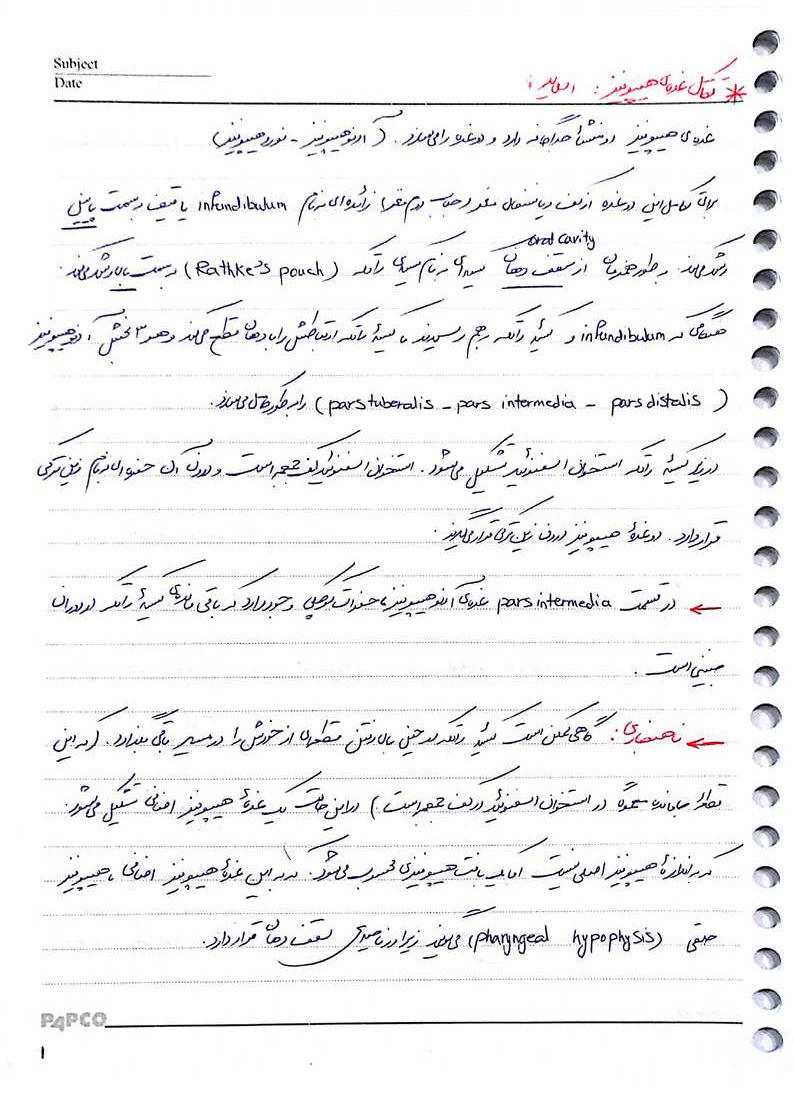 Subject
Date
* تکامل غده‌ی هیپوفیز: اسلاید ۱
غده‌ی هیپوفیز دو منشأ جداگانه دارد و دو غده را می‌سازد. (آدنوهیپوفیز - نوروهیپوفیز)
برای تکامل این دو غده از کف دیانسفال مغز (حباب دوم مغز) زائده‌ای به نام infundibulum یا قیف به سمت پایین
oral cavity
رشد می‌کند. به طور همزمان از سقف دهان کیسه‌ای به نام کیسه‌ی راتکه (Rathke's pouch) به سمت بالا رشد می‌کند.
هنگامی که infundibulum و کیسهٔ راتکه به هم رسیدند کیسهٔ راتکه ارتباطش را با دهان قطع می‌کند و هر ۳ بخش آدنوهیپوفیز
(pars tuberalis - pars intermedia - pars distalis) را به طور کامل می‌سازد.
در زیر کیسهٔ راتکه استخوان اسفنوئید تشکیل می‌شود. استخوان اسفنوئید کف جمجمه است و درون آن حفره‌ای به نام زین ترکی
قرار دارد. دو غدهٔ هیپوفیز درون زین ترکی قرار می‌گیرند.
← در قسمت pars intermedia غده‌ی آدنوهیپوفیز حفرات کوچکی وجود دارد که باقی مانده‌ی کیسهٔ راتکه در دوران
جنینی است.
← ناهنجاری: گاهی ممکن است کیسهٔ راتکه در حین بالا رفتن قطعه‌ای از خودش را در مسیر باقی بگذارد. (که این
قطعهٔ جامانده معمولا در استخوان اسفنوئید در کف جمجمه است) در این حالت یک غدهٔ هیپوفیز اضافی تشکیل می‌شود.
که به اندازهٔ هیپوفیز اصلی نیست اما یک بافت هیپوفیزی محسوب می‌شود. که به این غدهٔ هیپوفیز اضافی، هیپوفیز
حلقی (pharyngeal hypophysis) می‌گویند زیرا در ناحیه‌ی سقف دهان قرار دارد.
PAPCO
۱